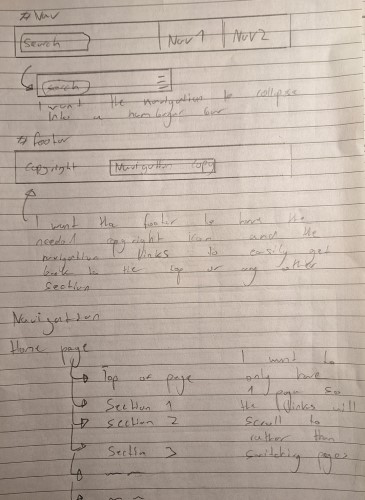 # Nav
Search Nav 1 Nav 2
Search
I want the navigation to collapse
into a hamburger bar
# footer
Copyright Navigation copy
I want the footer to have the
needed copyright and the
navigation links to easily get
back to the top or any other
section
Navigation
Home page
Top of page
Section 1
Section 2
Section 3
I want to
only have
1 page so
the links will
scroll to
rather than
switching pages